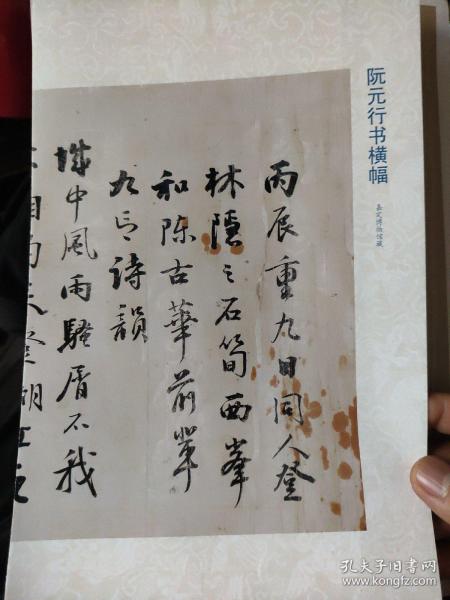 阮元行书横幅
嘉定博物馆藏
丙辰重九日同人登
林隐之石筍西峯
和陈古華前輩
九言詩韻
城中風雨騷屑不我
孔夫子旧书网
www.kongfz.com